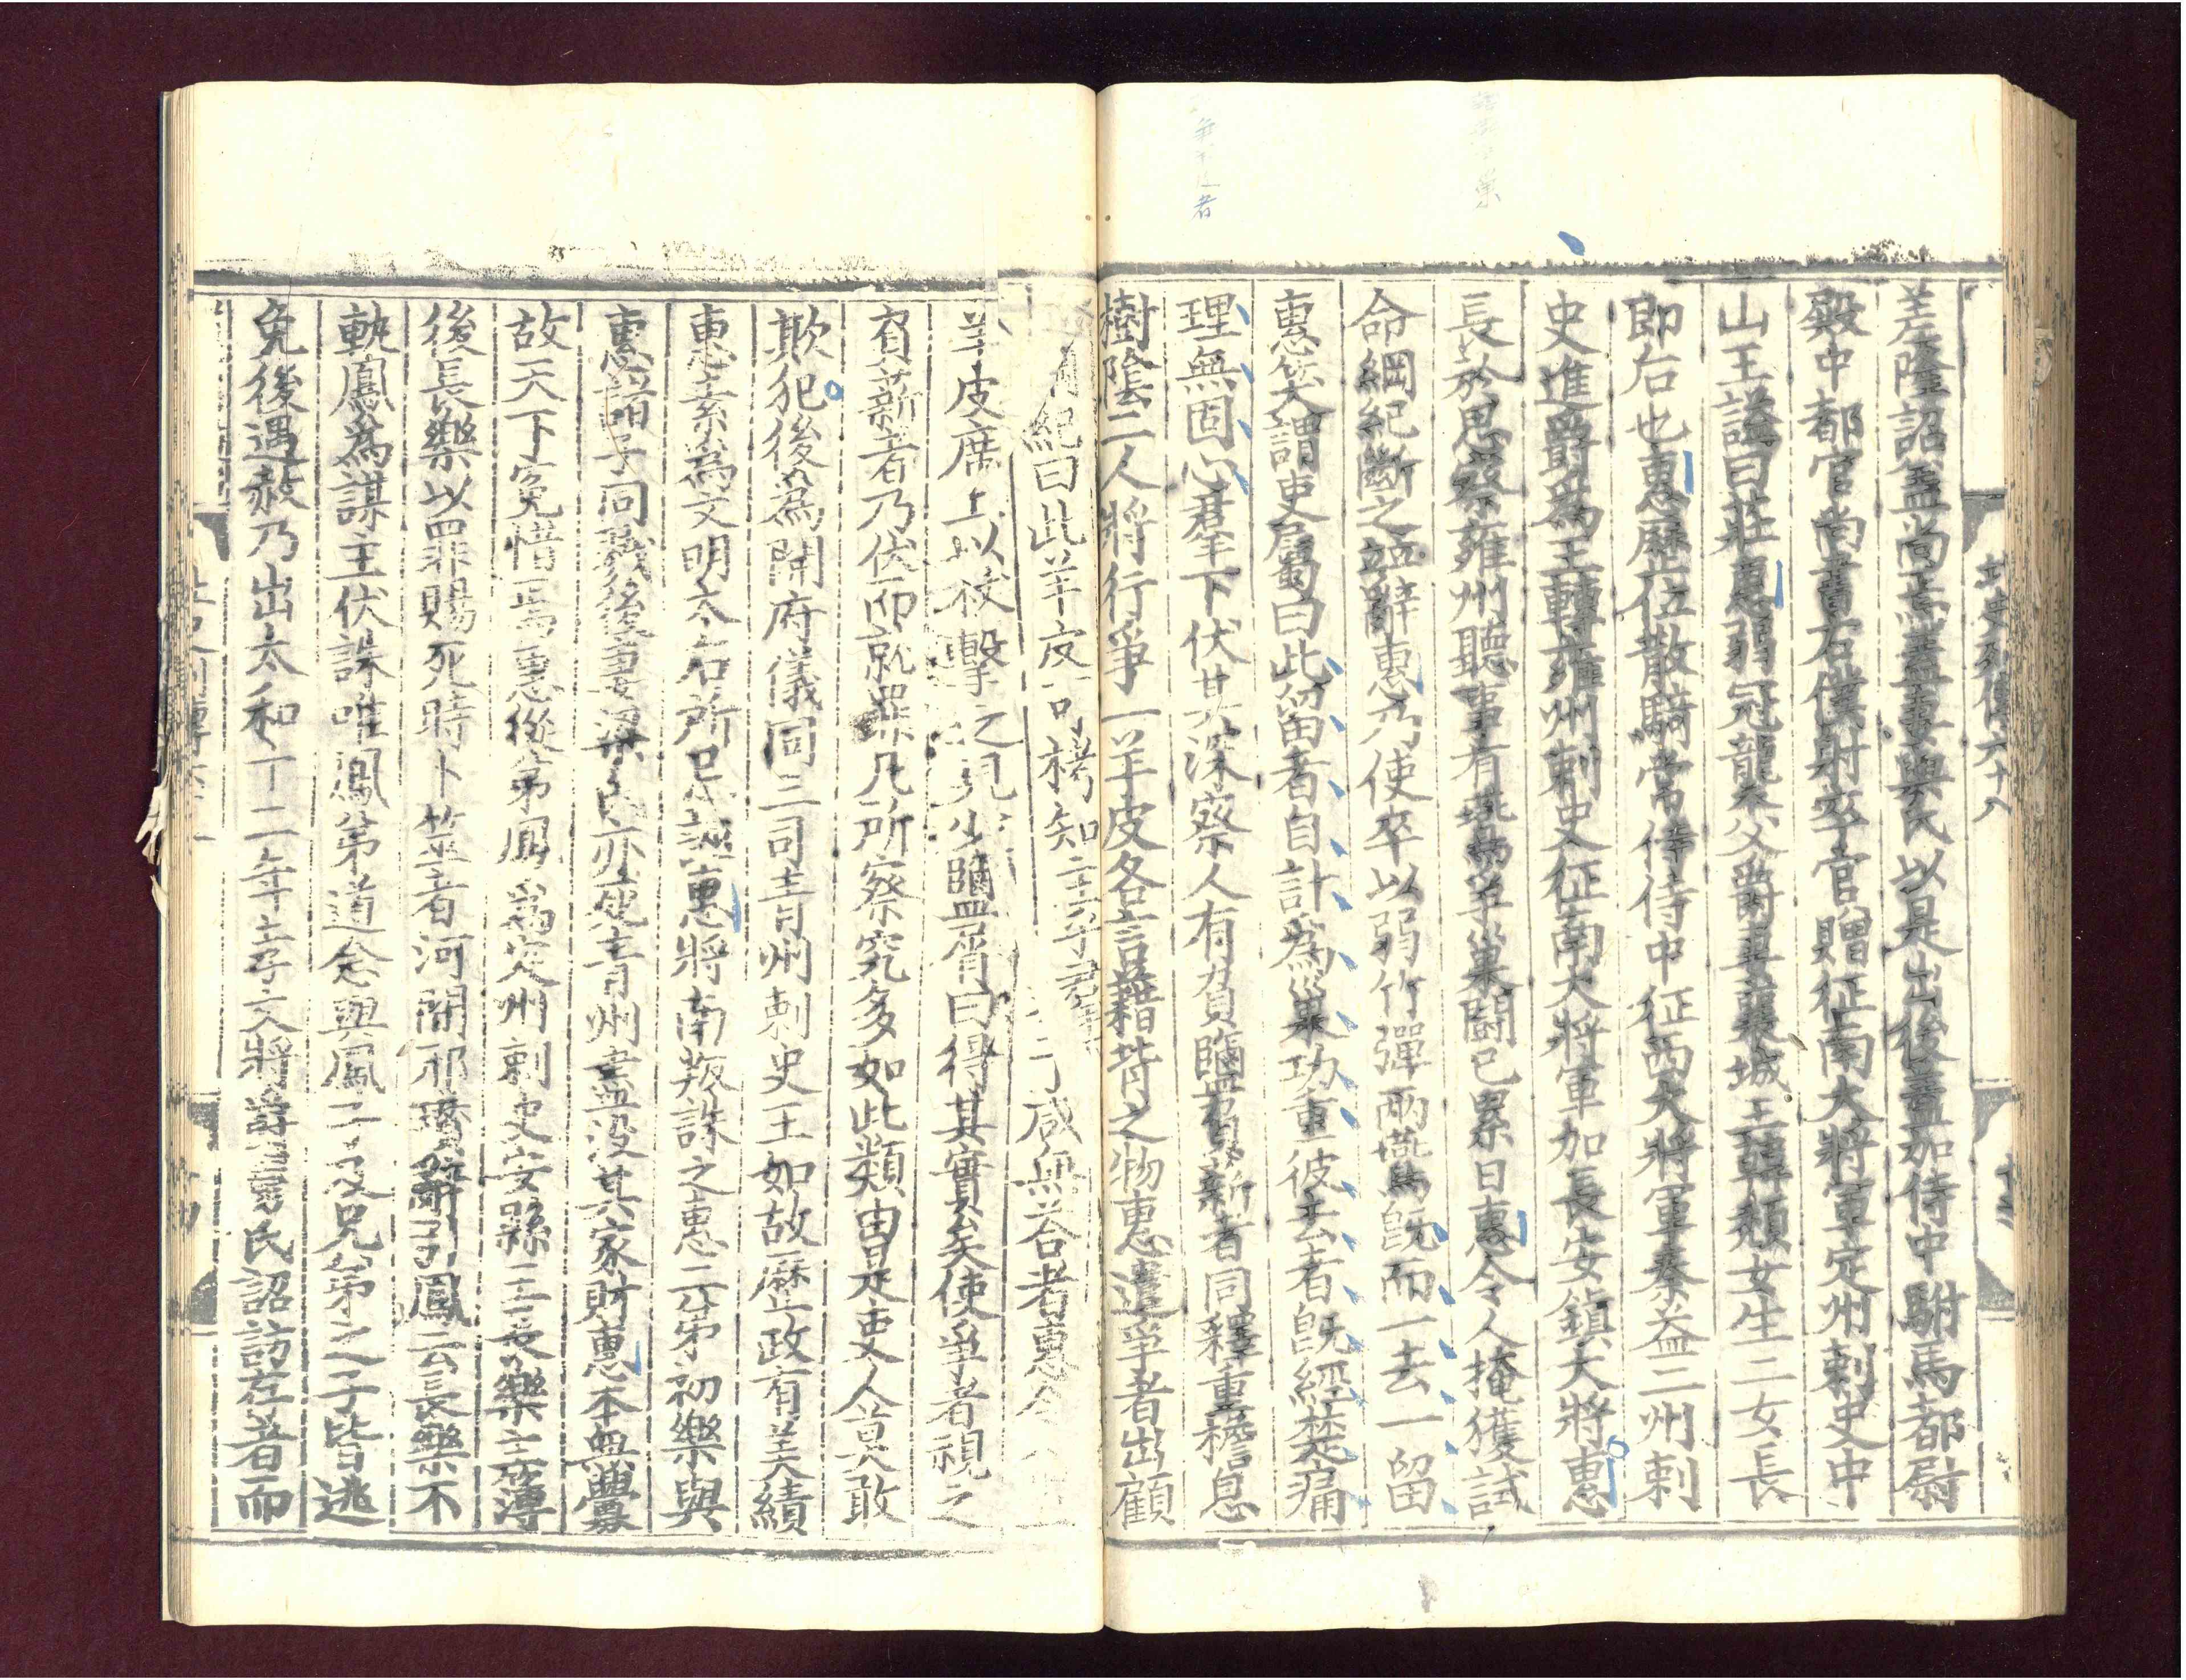 北史列傳六十八
羌隆詔蓋尚焉蓋妻與氏以是出後蓋加侍中駙馬都尉
殿中都官尚書右僕射卒官贈征南大將軍定州刺史中
山王諡曰莊惠弱冠襲父爵妻襄城王韓頹女生二女長
即后也惠歷位散騎常侍侍中征西大將軍秦益二州刺
史進爵爲王轉雍州刺史征南大將軍加長安鎮大將惠
長於思察雍州聽事有燕爭巢鬪已累日惠令人掩獲試
命綱紀斷之並辭惠乃使卒以弱竹彈兩燕既而一去一留
惠笑謂吏屬曰此留者自計爲巢功重彼去者既經楚痛
理無固心羣下伏其深察人有負鹽負薪者同釋重擔息
樹陰二人將行爭一羊皮各言藉背之物惠遣爭者出顧
紀曰此羊皮可拷知主乎羣下咸無荅者惠令
羊皮席上以杖擊之見少鹽屑曰得其實矣使爭者視之
負薪者乃伏而就罪凡所察究多如此類由是吏人莫敢
欺犯後爲開府儀同三司青州刺史王如故歷政有美績
惠素爲文明太后所忌誣惠將南叛誅之惠二弟初樂與
惠諸子同戮後妻梁氏亦死青州盡沒其家財惠本無釁
故天下冤惜焉惠從弟鳳爲定州刺史安樂王長樂主簿
後長樂以罪賜死時卜筮者河間邢瓚辭引鳳云長樂不
軌鳳爲謀主伏誅唯鳳弟道念與鳳子及兄弟之子皆逃
免後遇赦乃出太和十二年孝文將爵舅氏詔訪存者而